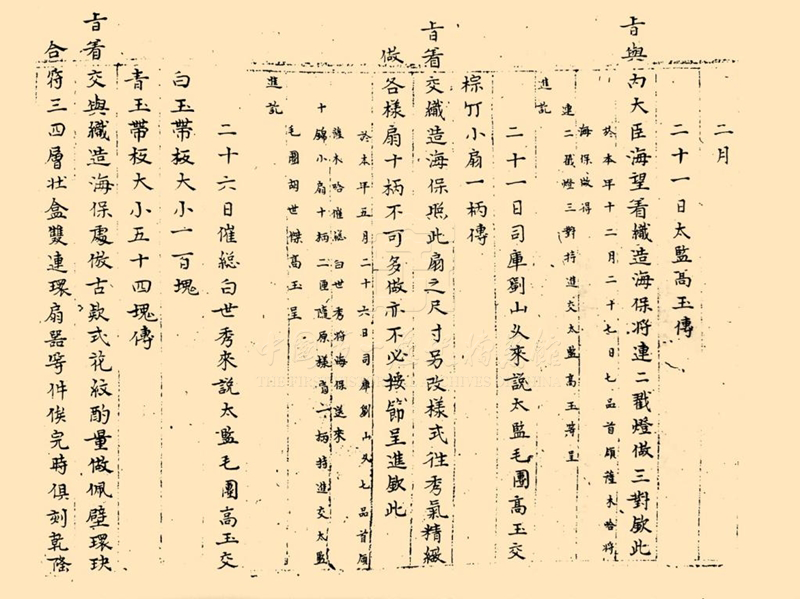 二月
二十一日太監高玉傳
旨與內大臣海望着織造海保將連二戳燈做三對欽此
於本年十二月二十七日七品首領薩木哈將
海保做得
連二戳燈三對持進交太監高玉等呈
進訖
二十一日司庫劉山久來說太監毛團高玉交
棕竹小扇一柄傳
旨着交織造海保照此扇之尺寸另改樣式往秀氣精緻
做各樣扇十柄不可多做亦不必接節呈進欽此
於本年五月二十六日司庫劉山久七品首領
薩木哈催總白世秀將海保送來
十錦小扇十柄二匣隨原樣扇一柄持進交太監
毛團胡世傑高玉呈
進訖
二十六日催總白世秀來說太監毛團高玉交
白玉帶板大小一百塊
青玉帶板大小五十四塊傳
旨着交與織造海保處倣古款式花紋酌量做佩璧環玦
合符三四層壯盒雙連環扇器等件俟完時俱刻乾隆